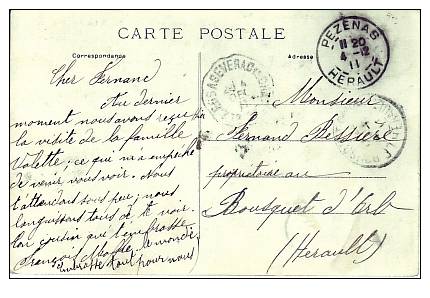 CARTE POSTALE
Correspondance
Adresse
PEZENAS
11 20
4 -12
11
HERAULT
Cher Fernand
Au dernier
moment nous avons reçu
la visite de la famille
Valette, ce qui m'a empêché
de venir vous voir. Nous
t'attendons sous peu; nous
languissons tous de te voir.
Ton cousin qui t'embrasse
François
embrasse tout pour nous
Monsieur
Fernand Bessière
propriétaire au
Bousquet d'Orb
(Herault)